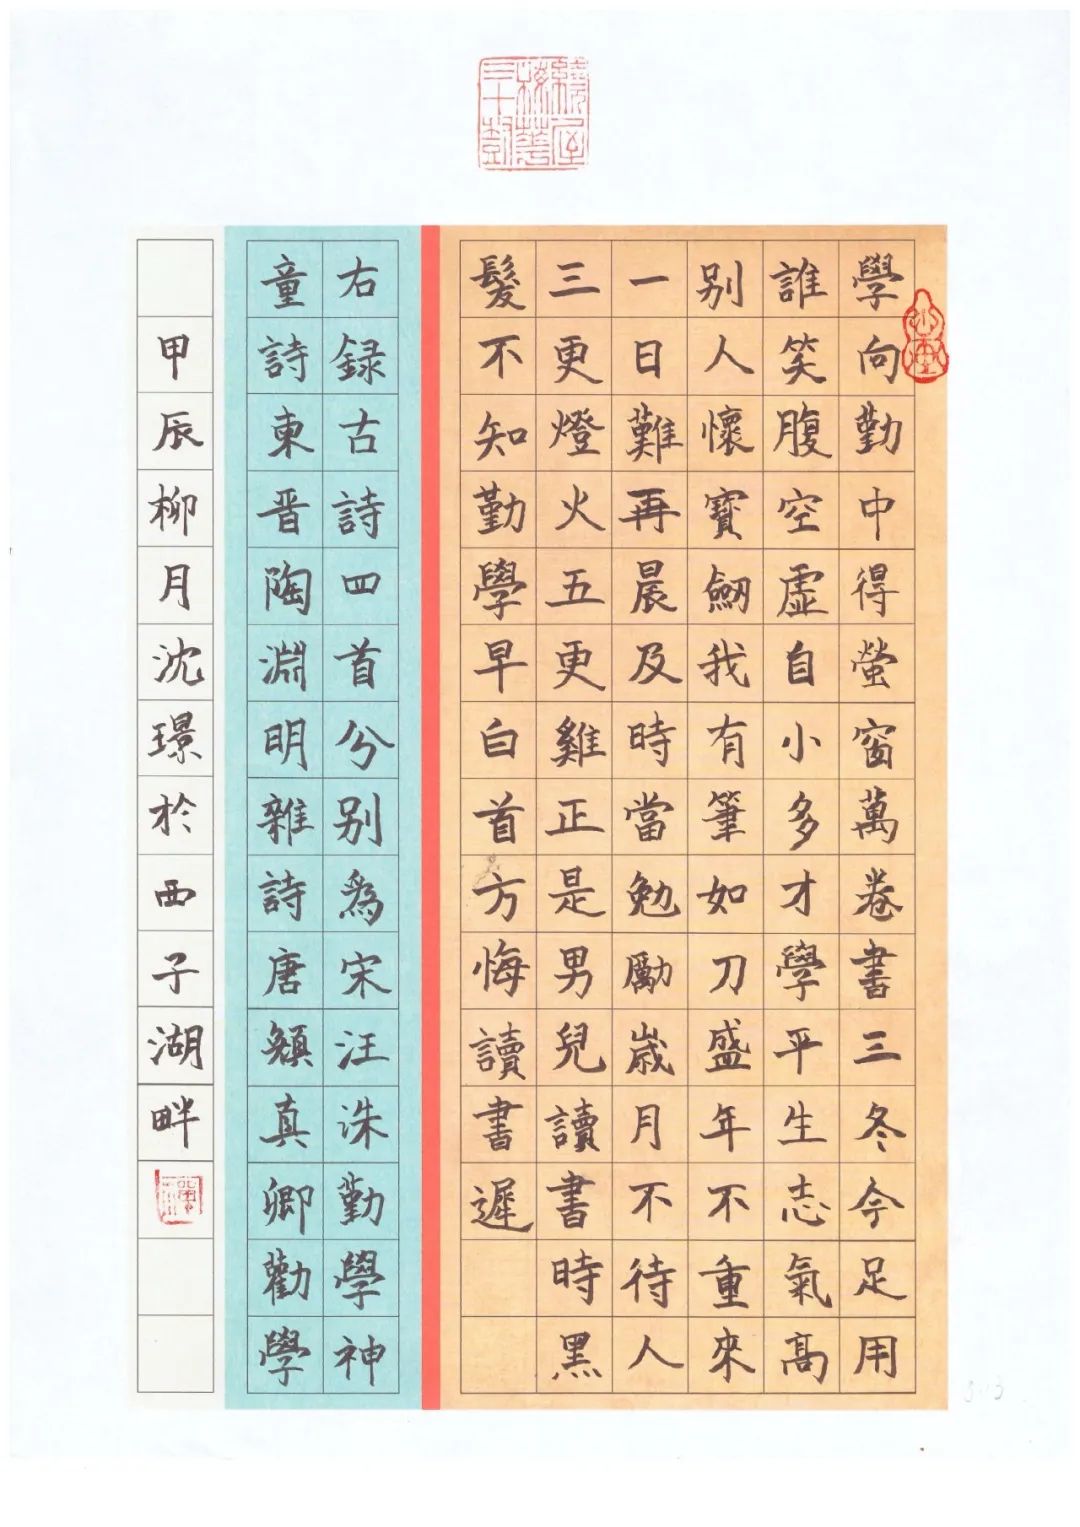 繞屋梅華三十樹
學向勤中得螢窗萬卷書三冬今足用
誰笑腹空虛自小多才學平生志氣高
别人懷寶劒我有筆如刀盛年不重來
一日難再晨及時當勉勵歲月不待人
三更燈火五更雞正是男兒讀書時黑
髮不知勤學早白首方悔讀書遲
右録古詩四首分别爲宋汪洙勤學神
童詩東晋陶淵明雜詩唐顔真卿勸學
甲辰柳月沈璟於西子湖畔